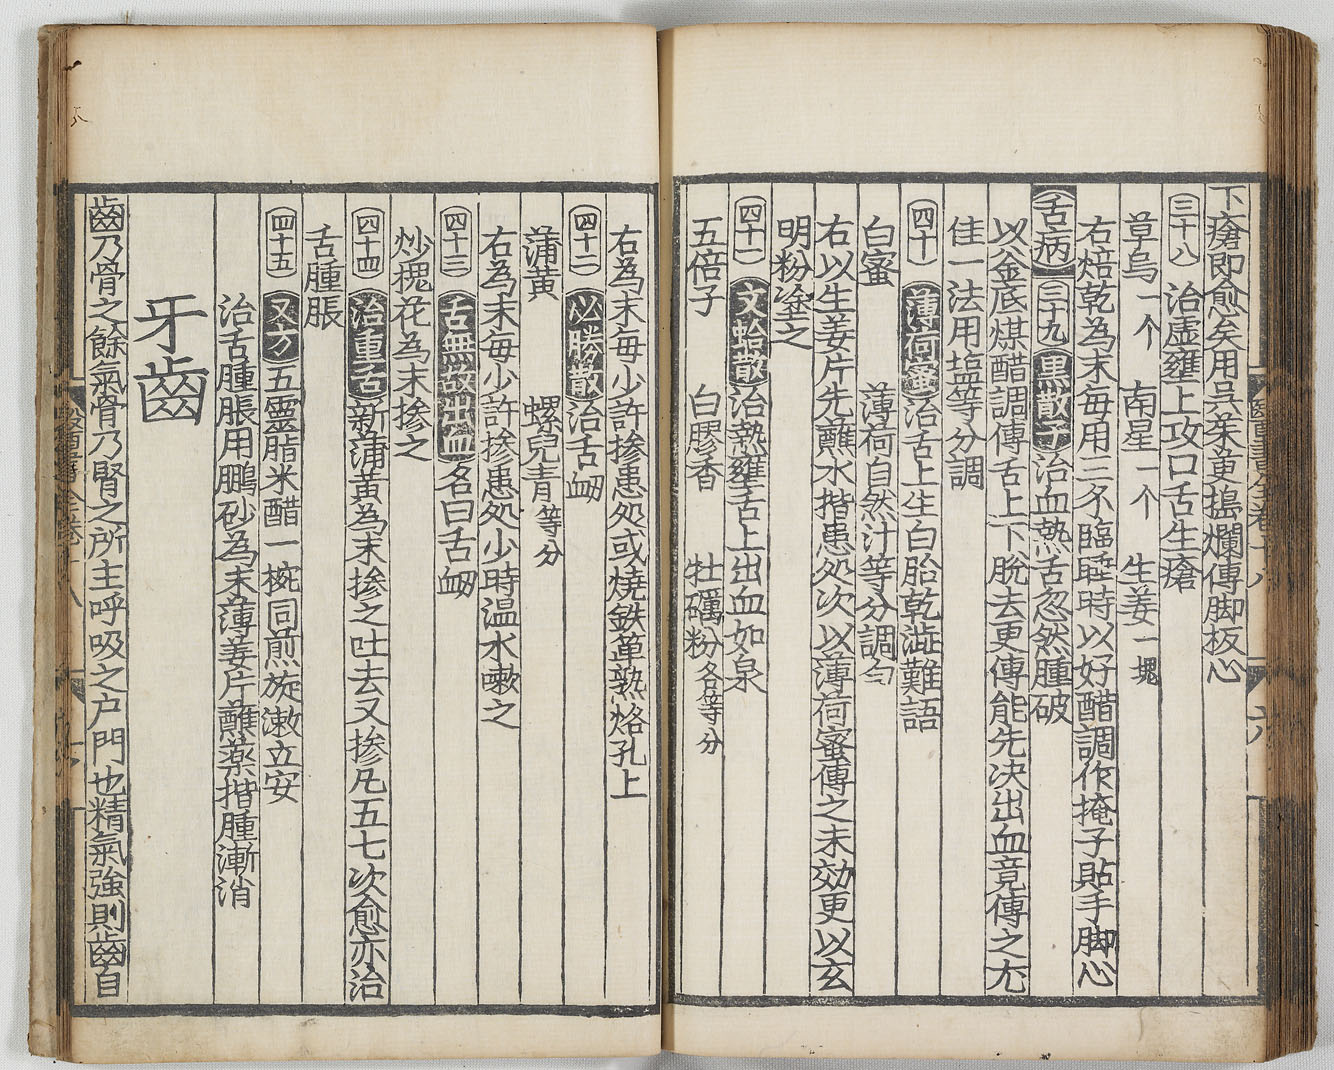 下瘡即愈矣用吳茱萸搗爛傅脚板心
三十八 治虛壅上攻口舌生瘡
草烏一个 南星一个 生姜一塊
右焙乾為末每用三禾臨睡時以好醋調作掩子貼手脚心
舌病 三十九 黒散子 治血熱舌忽然腫破
以金底煤醋調傅舌上下脫去更傅能先决出血竟傅之尤
佳一法用塩等分調
四十 薄荷蜜 治舌上生白胎乾澁難語
白蜜 薄荷自然汁等分調匀
右以生姜片先蘸水揩患処次以薄荷蜜傅之未効更以玄
明粉塗之
四十一 文蛤散 治熱壅舌上出血如泉
五倍子 白膠香 牡礪粉各等分
右為末毎少許摻患処或燒鉄篦熟烙孔上
四十二 必勝散 治舌衂
蒲黄 螺兒青等分
右為末毎少許摻患処少時温水嗽之
四十三 舌無故出血 名曰舌衂
炒槐花為末摻之
四十四 治重舌 新蒲黄為末摻之吐去又摻凡五七次愈亦治
舌腫脹
四十五 又方 五靈脂米醋一椀同煎旋漱立安
治舌腫脹用鵬砂為末薄姜片蘸藥揩腫漸消
牙齒
齒乃骨之餘氣骨乃腎之所主呼吸之户門也精氣強則齒自